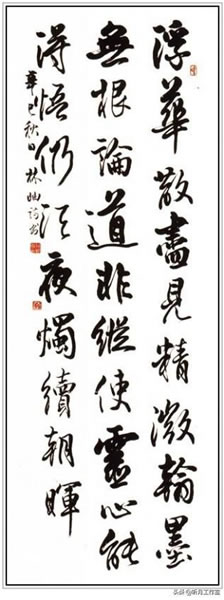 浮華散盡見精微翰墨
無根論道非縱使靈心能
得悟仍須夜燭續朝暉
辛巳秋日林岫詩书
头条@听月工作室